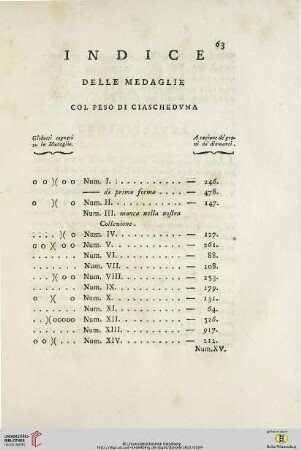 63
INDICE
DELLE MEDAGLIE
COL PESO DI CIASCHEDVNA
Globetti segnati su le Medaglie.
A ragione de' grani di diamanti.
o o )( o o Num. I. . . . . . . . . . . — 246.
—— di prima forma . . . . — 478.
o )( o Num. II. . . . . . . . . . . — 147.
Num. III. manca nella nostra
Collezione.
. . . . )( o Num. IV. . . . . . . . . . . — 127.
o o )( o o Num. V. . . . . . . . . . . — 261.
. . . . . . . Num. VI. . . . . . . . . . . — 88.
. . . . . . . Num. VII. . . . . . . . . . — 108.
. . . )( o o Num. VIII. . . . . . . . . . — 253.
. . . . . . . Num. IX. . . . . . . . . . . — 179.
o )( o Num. X. . . . . . . . . . . — 131.
. . . . . . . Num. XI. . . . . . . . . . . — 64.
. . )( ooooo Num. XII. . . . . . . . . . — 526.
. . . . . . . Num. XIII. . . . . . . . . . — 917.
o o )( . . . Num. XIV. . . . . . . . . . — 212.
Num.XV.
UNIVERSITÄTS-
BIBLIOTHEK
HEIDELBERG
© Universitätsbibliothek Heidelberg